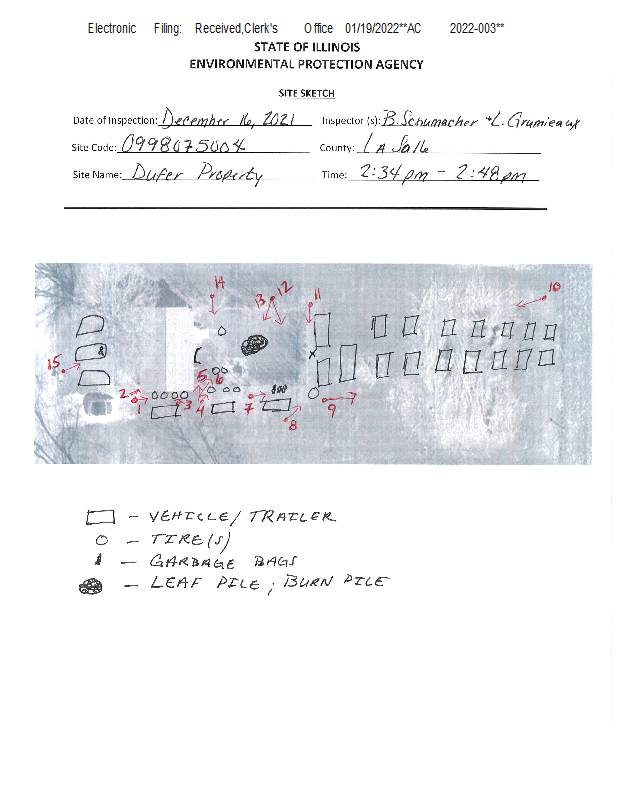 Electronic Filing: Received,Clerk's Office 01/19/2022**AC 2022-003**
STATE OF ILLINOIS
ENVIRONMENTAL PROTECTION AGENCY
SITE SKETCH
Date of Inspection: December 16, 2021 Inspector (s): B. Schumacher + L. Grumieaux
Site Code: 0998075004 County: LaSalle
Site Name: Dufer Property Time: 2:34 pm - 2:48 pm
14 13 12 11 10
15
5 6
2 1 3 4 7 8 9
X
- VEHICLE/TRAILER
- TIRE(S)
- GARBAGE BAGS
- LEAF PILE; BURN PILE